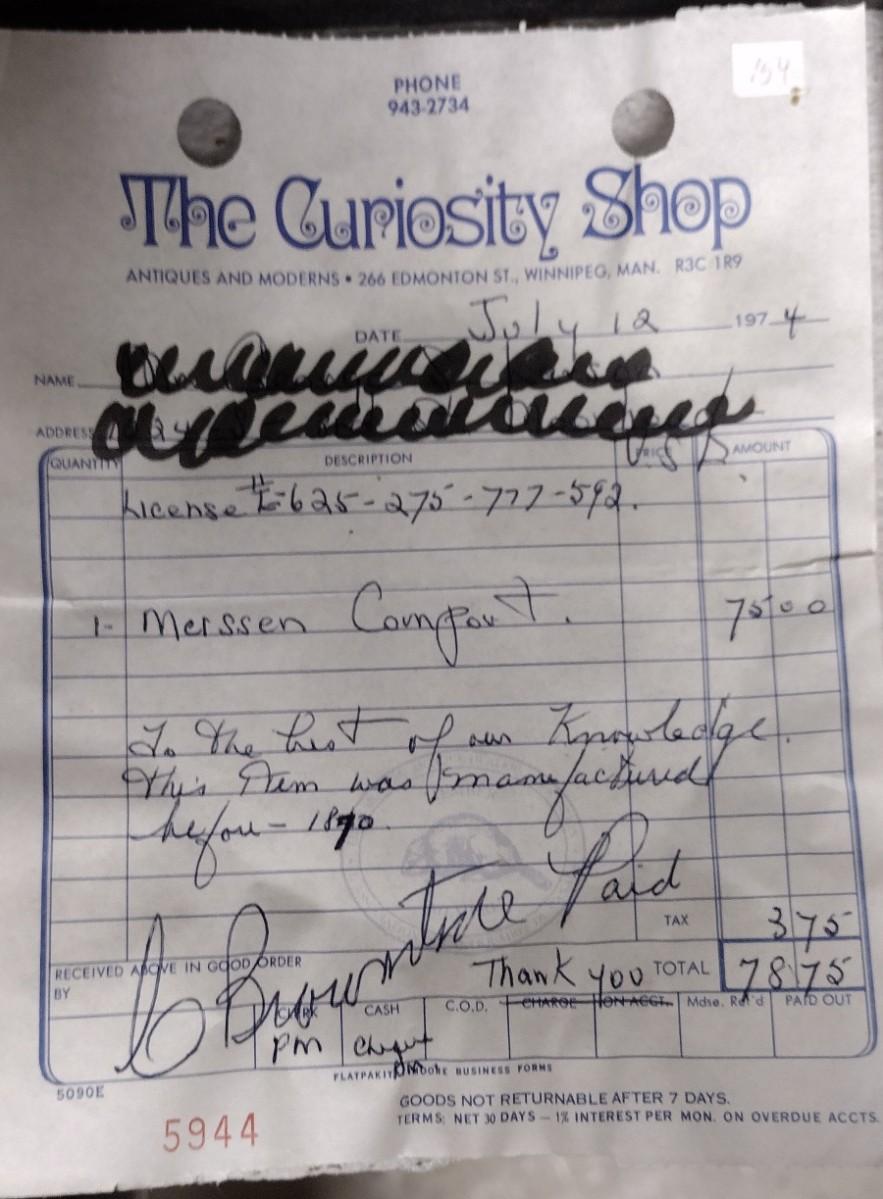 154
PHONE
943-2734
The Curiosity Shop
ANTIQUES AND MODERNS • 266 EDMONTON ST., WINNIPEG, MAN. R3C 1R9
DATE July 12 1974
NAME
ADDRESS
QUANTITY DESCRIPTION PRICE AMOUNT
License # E-625-275-777-592.
1- Merssen Comport. 75 00
To the best of our Knowledge.
this Item was manufactured
before - 1890.
Paid
TAX 3 75
RECEIVED ABOVE IN GOOD ORDER
BY
Thank you TOTAL 78 75
CLERK CASH C.O.D. CHARGE ON ACCT. Mdse. Ret'd PAID OUT
PM Cheque
FLATPAKIT MOORE BUSINESS FORMS
5090E
GOODS NOT RETURNABLE AFTER 7 DAYS.
TERMS: NET 30 DAYS — 1% INTEREST PER MON. ON OVERDUE ACCTS.
5944